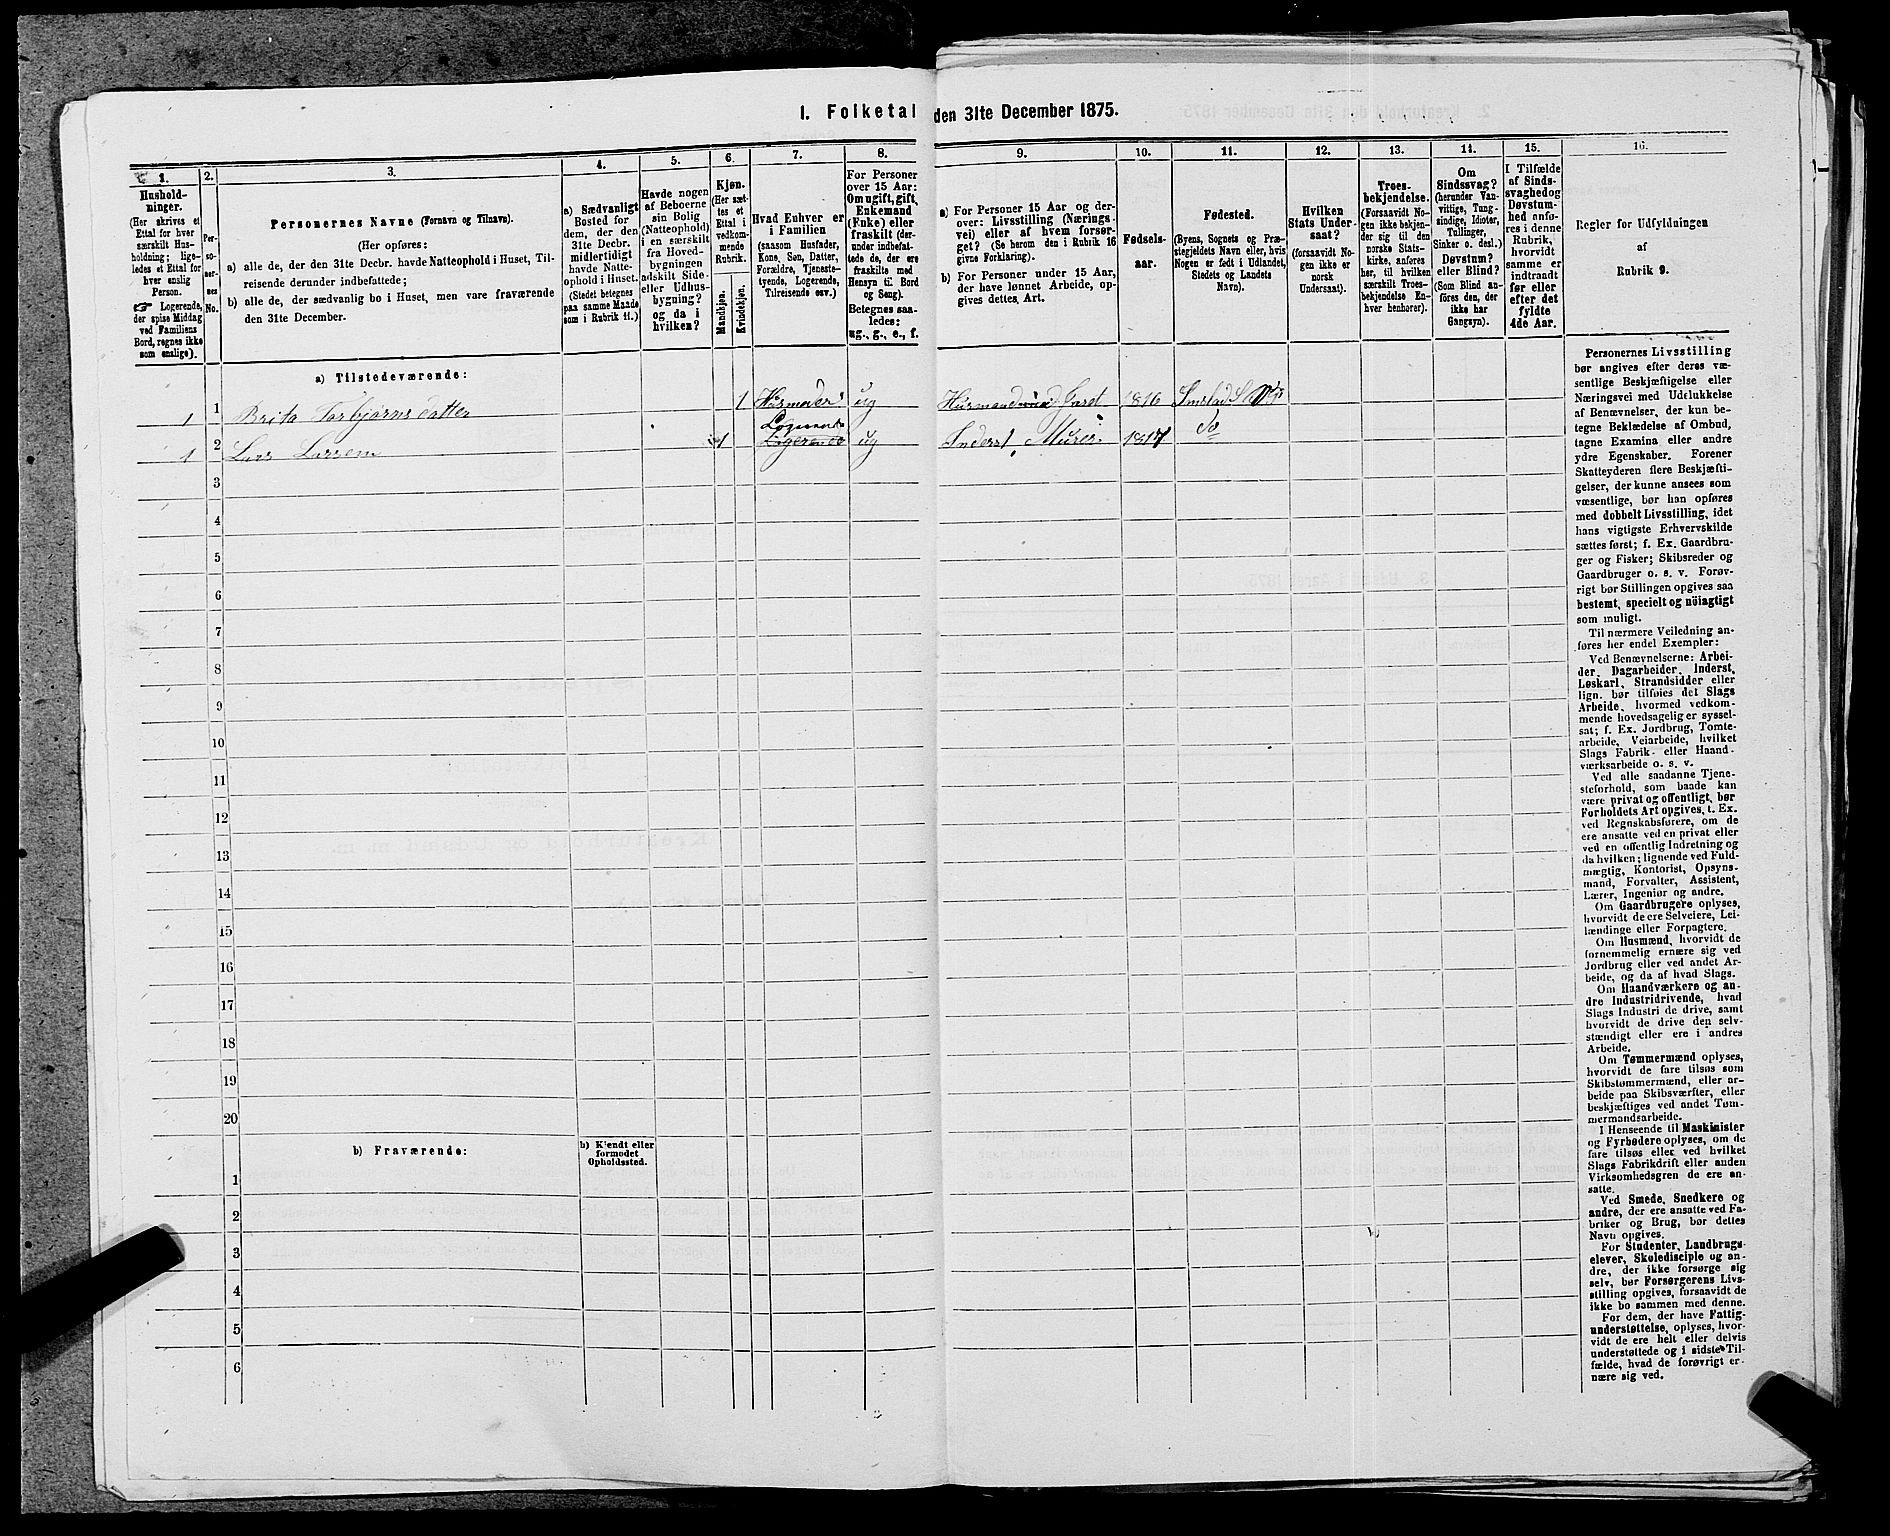 1. Folketal den 31te December 1875.
1.
Hushold-
ninger.
(Her skrives et
Ettal for hver
særskilt Hus-
holdning; lige-
ledes et Ettal for
hver enslig
Person.
☞ Logerende,
der spise Middag
ved Familiens
Bord, regnes ikke
som enslige).
2.
Per-
so-
ner-
nes
No.
3.
Personernes Navne (Fornavn og Tilnavn).
(Her opføres:
a) alle de, der den 31te Decbr. havde Natteophold i Huset, Til-
reisende derunder indbefattede;
b) alle de, der sædvanlig bo i Huset, men vare fraværende
den 31te December.
4.
a) Sædvanligt
Bosted for
dem, der den
31te Decbr.
midlertidigt
havde Natte-
ophold i Huset.
(Stedet betegnes
paa samme Maade
som i Rubrik 11.)
5.
Havde nogen
af Beboerne
sin Bolig
(Natteophold)
i en særskilt
fra Hoved-
bygningen
adskilt Side-
eller Udhus-
bygning?
og da i
hvilken?
6.
Kjøn.
(Her sæt-
tes et
Ettal i
vedkom-
mende
Rubrik.
Mandkjøn.
Kvindekjøn.
7.
Hvad Enhver er
i Familien
(saasom Husfader,
Kone, Søn, Datter,
Forældre, Tjeneste-
tyende, Logerende,
Tilreisende osv.)
8.
For Personer
over 15 Aar:
Om ugift, gift,
Enkemand
(Enke) eller
fraskilt (der-
under indbefat-
tede de, der ere
fraskilte med
Hensyn til Bord
og Seng).
Betegnes saa-
ledes:
ug., g., e., f.
9.
a) For Personer 15 Aar og der-
over: Livsstilling (Nærings-
vei) eller af hvem forsør-
get? (Se herom den i Rubrik 16
givne Forklaring).
b) For Personer under 15 Aar,
der have lønnet Arbeide, op-
gives dettes, Art.
10.
Fødsels-
aar.
11.
Fødested.
(Byens, Sognets og Præ-
stegjeldets Navn eller, hvis
Nogen er født i Udlandet,
Stedets og Landets
Navn).
12.
Hvilken
Stats Under-
saat?
(forsaavidt No-
gen ikke er
norsk
Undersaat).
13.
Troes-
bekjendelse.
(Forsaavidt No-
gen ikke bekjen-
der sig til den
norske Stats-
kirke, anføres
her, til hvilken
særskilt Troes-
bekjendelse En-
hver henhorer).
14.
Om
Sindssvag?
(herunder Van-
vittige, Tung-
sindige, Idioter,
Tullinger,
Sinker o. desl.)
Døvstum?
eller Blind?
(Som Blind an-
føres den, der
ikke har
Gangsyn).
15.
I Tilfælde
af Sinds-
svaghed og
Døvstum-
hed anfø-
res i denne
Rubrik,
hvorvidt
samme er
indtraadt
før eller
efter det
fyldte
4de Aar.
16.
Regler for Udfyldningen
af
Rubrik 9.
a) Tilstedeværende:
1 1 Brita Torbjørnsdatter 1 Husmoder ug 1816
Logerende
1 2 Lars Larsen 1 Logerende ug Inderst, Murer. 1817 Do
3
4
5
6
7
8
9
10
11
12
13
14
15
16
17
18
19
20
b) Fraværende:
b) Kjendt eller
formodet
Opholdssted.
1
2
3
4
5
6
Personernes Livsstilling
bør angives efter deres væ-
sentlige Beskjæftigelse eller
Næringsvei med Udelukkelse
af Benævnelser, der kun be-
tegne Beklædelse af Ombud,
tagne Examina eller andre
ydre Egenskaber. Forener
Skatteyderen flere Beskjæfti-
gelser, der kunne ansees som
væsentlige, bør han opføres
med dobbelt Livsstilling, idet
hans vigtigste Erhvervskilde
sættes først; f. Ex. Gaardbru-
ger og Fisker; Skibsreder og
Gaardbruger o. s. v. Forøv-
rigt bør Stillingen opgives saa
bestemt, specielt og nöiagtigt
som muligt.
Til nærmere Veiledning an-
føres her endel Exempler:
Ved Benævnelserne: Arbei-
der, Dagarbeider, Inderst,
Løskarl, Strandsidder eller
lign. bør tilføies det Slags
Arbeide, hvormed vedkom-
mende hovedsagelig er syssel-
sat; f. Ex. Jordbrug, Tomte-
arbeide, Veiarbeide, hvilket
Slags Fabrik- eller Haand-
værksarbeide o. s. v.
Ved alle saadanne Tjene-
steforhold, som baade kan
være privat og offentligt, bør
Forholdets Art opgives, t. Ex.
ved Regnskabsførere, om de
ere ansatte ved en privat eller
ved en offentlig Indretning og
da hvilken; lignende ved Fuld-
mægtig, Kontorist, Opsyns-
mand, Forvalter, Assistent,
Lærer, Ingeniør og andre.
Om Gaardbrugere oplyses,
hvorvidt de ere Selveiere, Lei-
lændinge eller Forpagtere.
Om Husmænd, hvorvidt de
fornemmelig ernære sig ved
Jordbrug eller ved andet Ar-
beide, og da af hvad Slags.
Om Haandværkere og an-
dre Industridrivende, hvad
Slags Industri de drive, samt
hvorvidt de drive den selv-
stændigt eller ere i andres
Arbeide.
Om Tømmermænd oplyses,
hvorvidt de fare tilsøs som
Skibstømmermænd, eller ar-
beide paa Skibsværfter, eller
beskjæftiges ved andet Tøm-
mermandsarbeide.
I Henseende til Maskinister
og Fyrbødere oplyses, om de
fare tilsøs eller ved hvilket
Slags Fabrikdrift eller anden
Virksomhedsgren de ere an-
satte.
Ved Smede, Snedkere og
andre, der ere ansatte ved Fa-
briker og Brug, bør dettes
Navn opgives.
For Studenter, Landbrugs-
elever, Skoledisciple og an-
dre, der ikke forsørge sig
selv, bør Forsørgerens Livs-
stilling opgives, forsaavidt de
ikke bo sammen med denne.
For dem, der have Fattig-
understøttelse, oplyses, hvor-
vidt de ere helt eller delvis
understøttede og i sidste Til-
fælde, hvad de forøvrigt er-
nære sig ved.